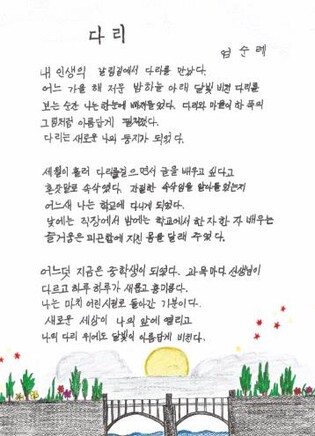 다리
엄순례
내 인생의 갈림길에서 다리를 만났다.
어느 가을 해 저문 밤하늘 아래 달빛 비친 다리를
보는 순간 나는 한눈에 빠져들었다. 다리와 마을이 한 폭의
그림처럼 아름답게 펼쳐졌다.
다리는 새로운 나의 둥지가 되었다.
세월이 흘러 다리를 걸으면서 글을 배우고 싶다고
혼잣말로 속삭였다. 간절한 속삭임을 알아들었는지
어느새 나는 학교에 다니게 되었다.
낮에는 직장에서 밤에는 학교에서 한 자 한 자 배우는
즐거움은 피곤함에 지친 몸을 달래 주었다.
어느덧 지금은 중학생이 되었다. 과목마다 선생님이
다르고 하루하루가 새롭고 흥미롭다.
나는 마치 어린시절로 돌아간 기분이다.
새로운 세상이 나의 앞에 열리고
나의 다리 위에도 달빛이 아름답게 비친다.